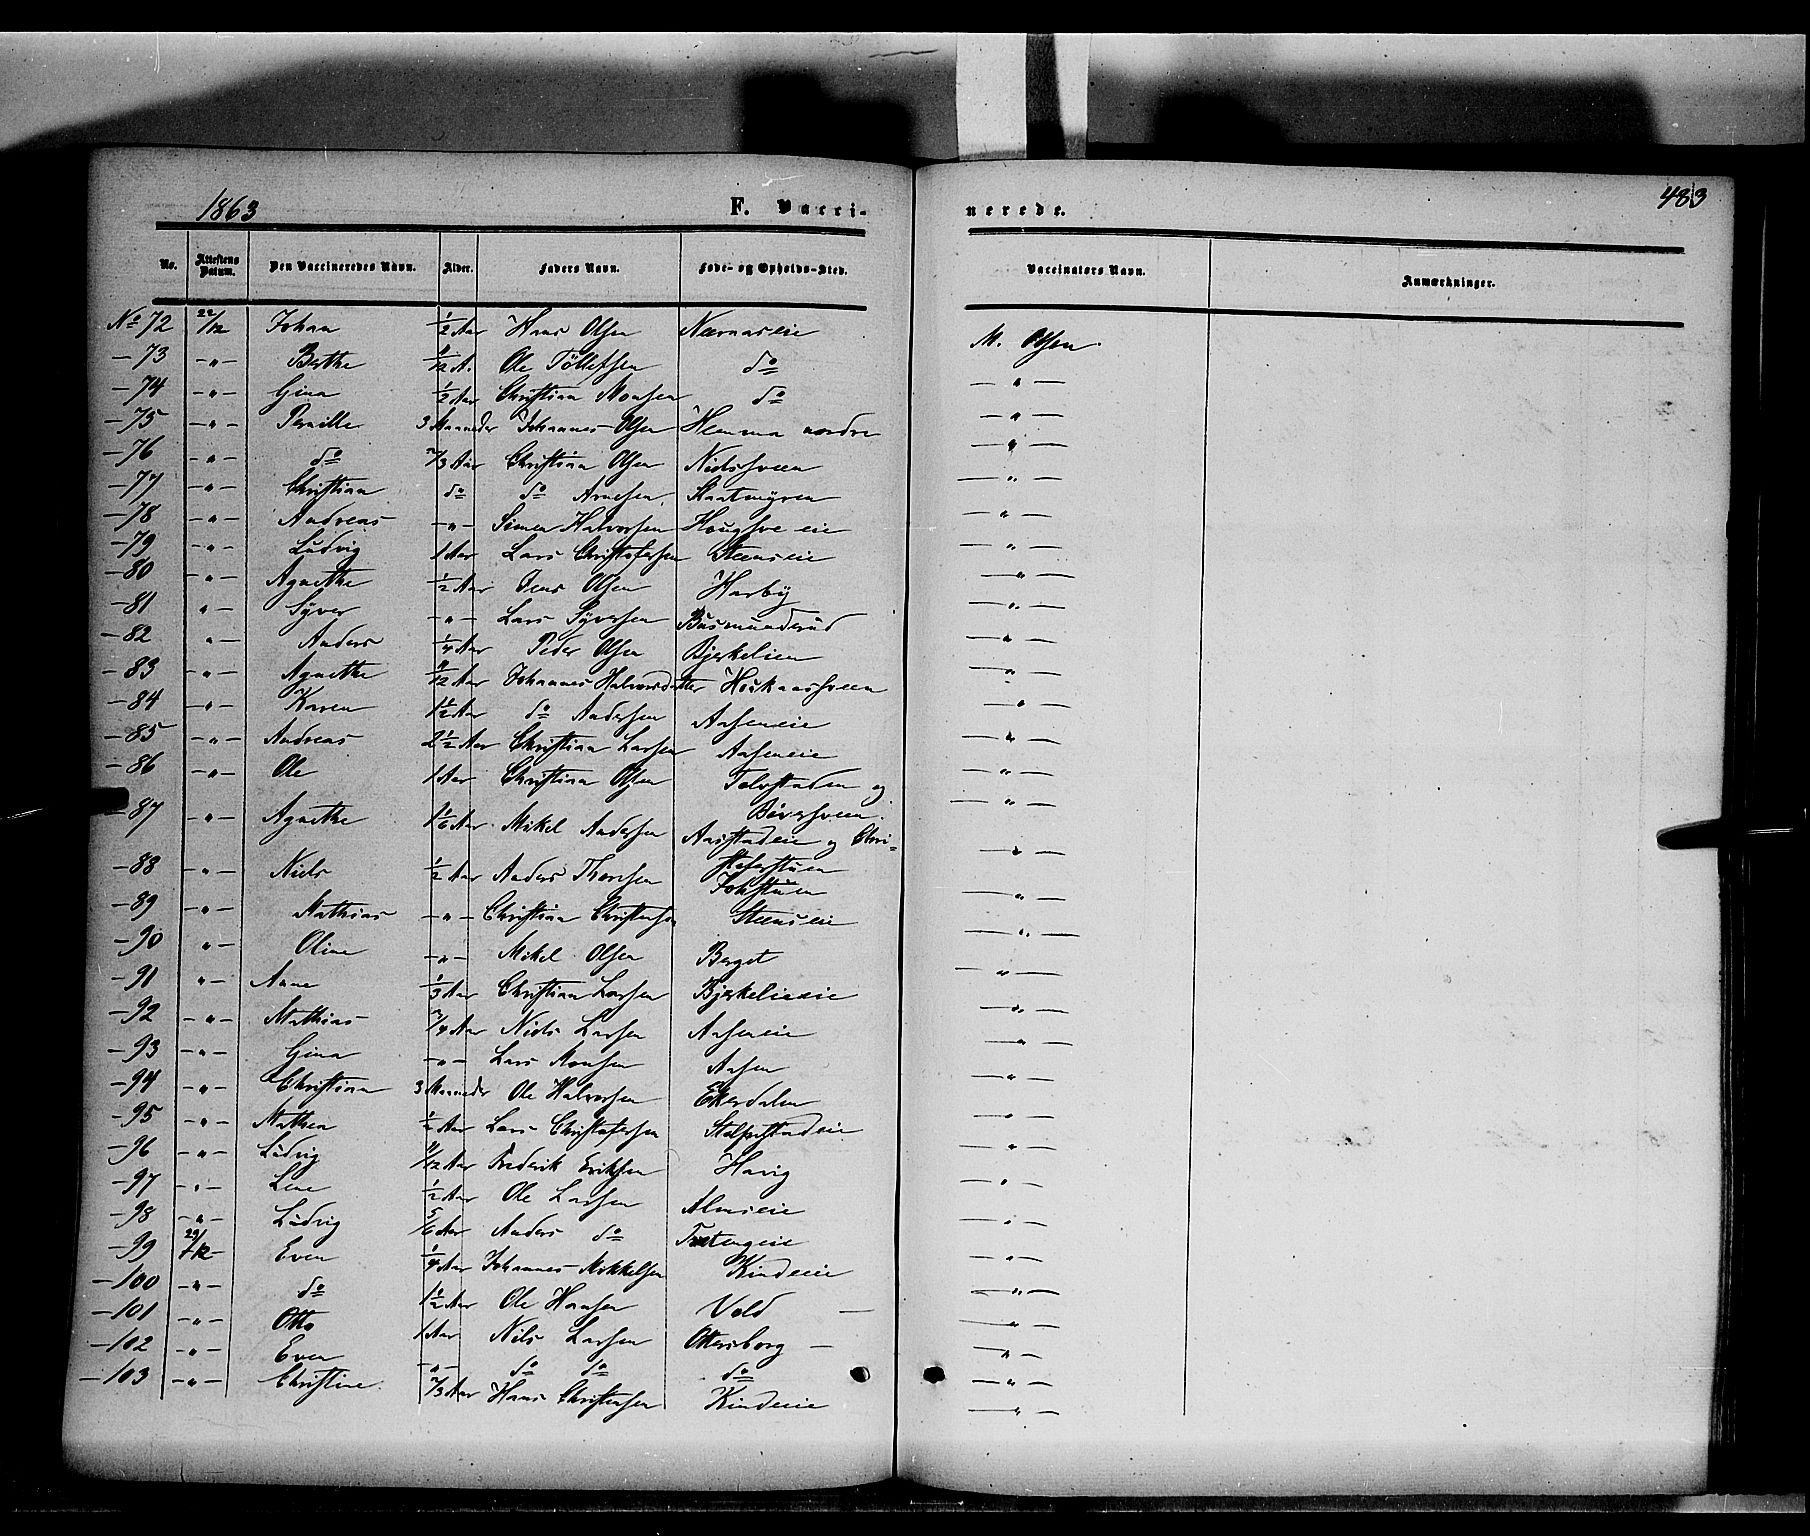 1863 F. Vacci- nerede. 483
No. Attestens Datum. Den Vaccineredes Navn. Alder. Faders Navn. Føde- og Opholds-Sted. Vaccinators Navn. Anmærkninger.
No 72 22/12 Johan 1/2 Aar Hans Olsen Nærnæseie M. Olsen.
- 73 -"- Berthe /12 A. Ole Töllefsen do -"-
- 74 -"- Gina 1/2 Aar Christian Monsen do -"-
- 75 -"- Pernille 3 Maaneder Johannes Olsen Hemma nordre -"-
- 76 -"- do 2/3 Aar Christian Olsen Nielssveen -"-
- 77 -"- Christian do do Arnesen Skaatmyren -"-
- 78 -"- Andreas -"- Simen Halvorsen Hougsveeie -"-
- 79 -"- Ludvig 1 Aar Lars Christofersen Steenseie -"-
- 80 -"- Agnethe 1/2 Aar Jens Olsen Harby -"-
- 81 "- Syver -"- Lars Syversen Busmunderud -"-
- 82 "- Anders 1/4 Aar Peder Olsen Bjerkelien -"-
- 83 -"- Agnethe /12 Aar Johannes Halvorsdatter Hoskaassveen -"-
- 84 -"- Karen 1 1/2 Aar do Andersen Aaseneie -"-
- 85 -"- Andreas 2 1/2 Aar Christian Larsen Aaseneie -"-
- 86 -"- Ole 1 Aar Christian Olsen Tolvstaden og -"-
Böversveen.
- 87 -"- Agnethe 1 1/6 Aar Mikel Andersen Aasstadeie og Chri- -"-
stoferstuen
- 88 -"- Niels 1/2 Aar Anders Thoresen Johstuen -"-
- 89 -"- Mathias -"- Christian Christensen Steenseie -"-
- 90 "- Oline -"- Mikel Olsen Berget -"-
- 91 "- Anne 1/3 Aar Christian Larsen Bjerkelieeie -"-
- 92 -"- Mathias 3/4 Aar Niels Larsen Aaseneie -"-
- 93 -"- Gina -"- Lars Monsen Aasen -"-
- 94 -"- Christian 3 Maaneder Ole Halvorsen Ekerdalen -"-
- 95 -"- Mathea 1/2 Aar Lars Christofersen Stalpestadeie -"-
- 96 -"- Ludvig /12 Aar Frederik Eriksen Havig -"-
- 97 -"- Lene 1/2 Aar Ole Larsen Almseie -"-
- 98 -"- Ludvig 5/6 Aar Anders do Tutengeie -"-
- 99 29/12 Even 1/4 Aar Johannes Mikkelsen Kindeeie -"-
- 100 -"- do 1 1/2 Aar Ole Hansen Vold -"-
- 101 -"- Otto 1 Aar Nils Larsen Ottersborg -"-
- 102 -"- Even -"- do do do -"-
- 103 -"- Christine. 2/3 Aar Hans Christensen Kindeeie -"-